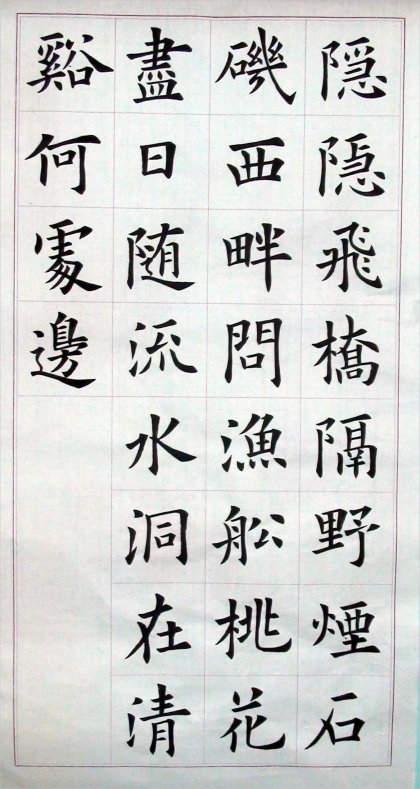 隠隠飛橋隔野煙石
磯西畔問漁舩桃花
盡日随流水洞在清
谿何處邊